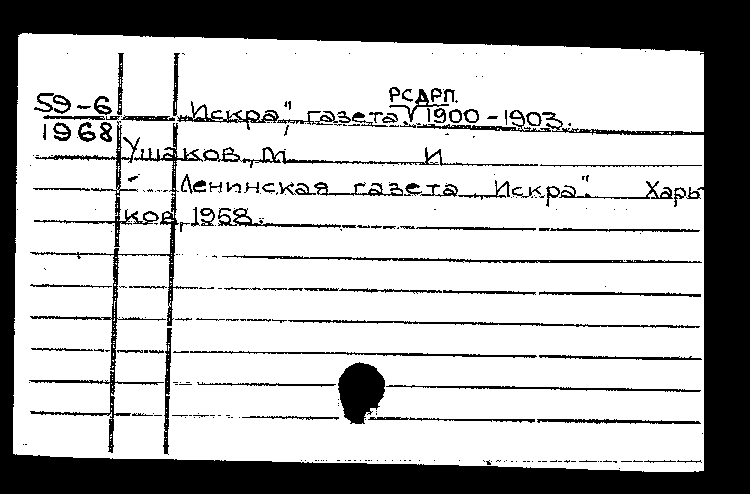 РСДРП.
59-6 „Искра", газета √ 1900-1903.
1968
Ушаков, М. И
Ленинская газета „Искра". Харь
ков, 1958.